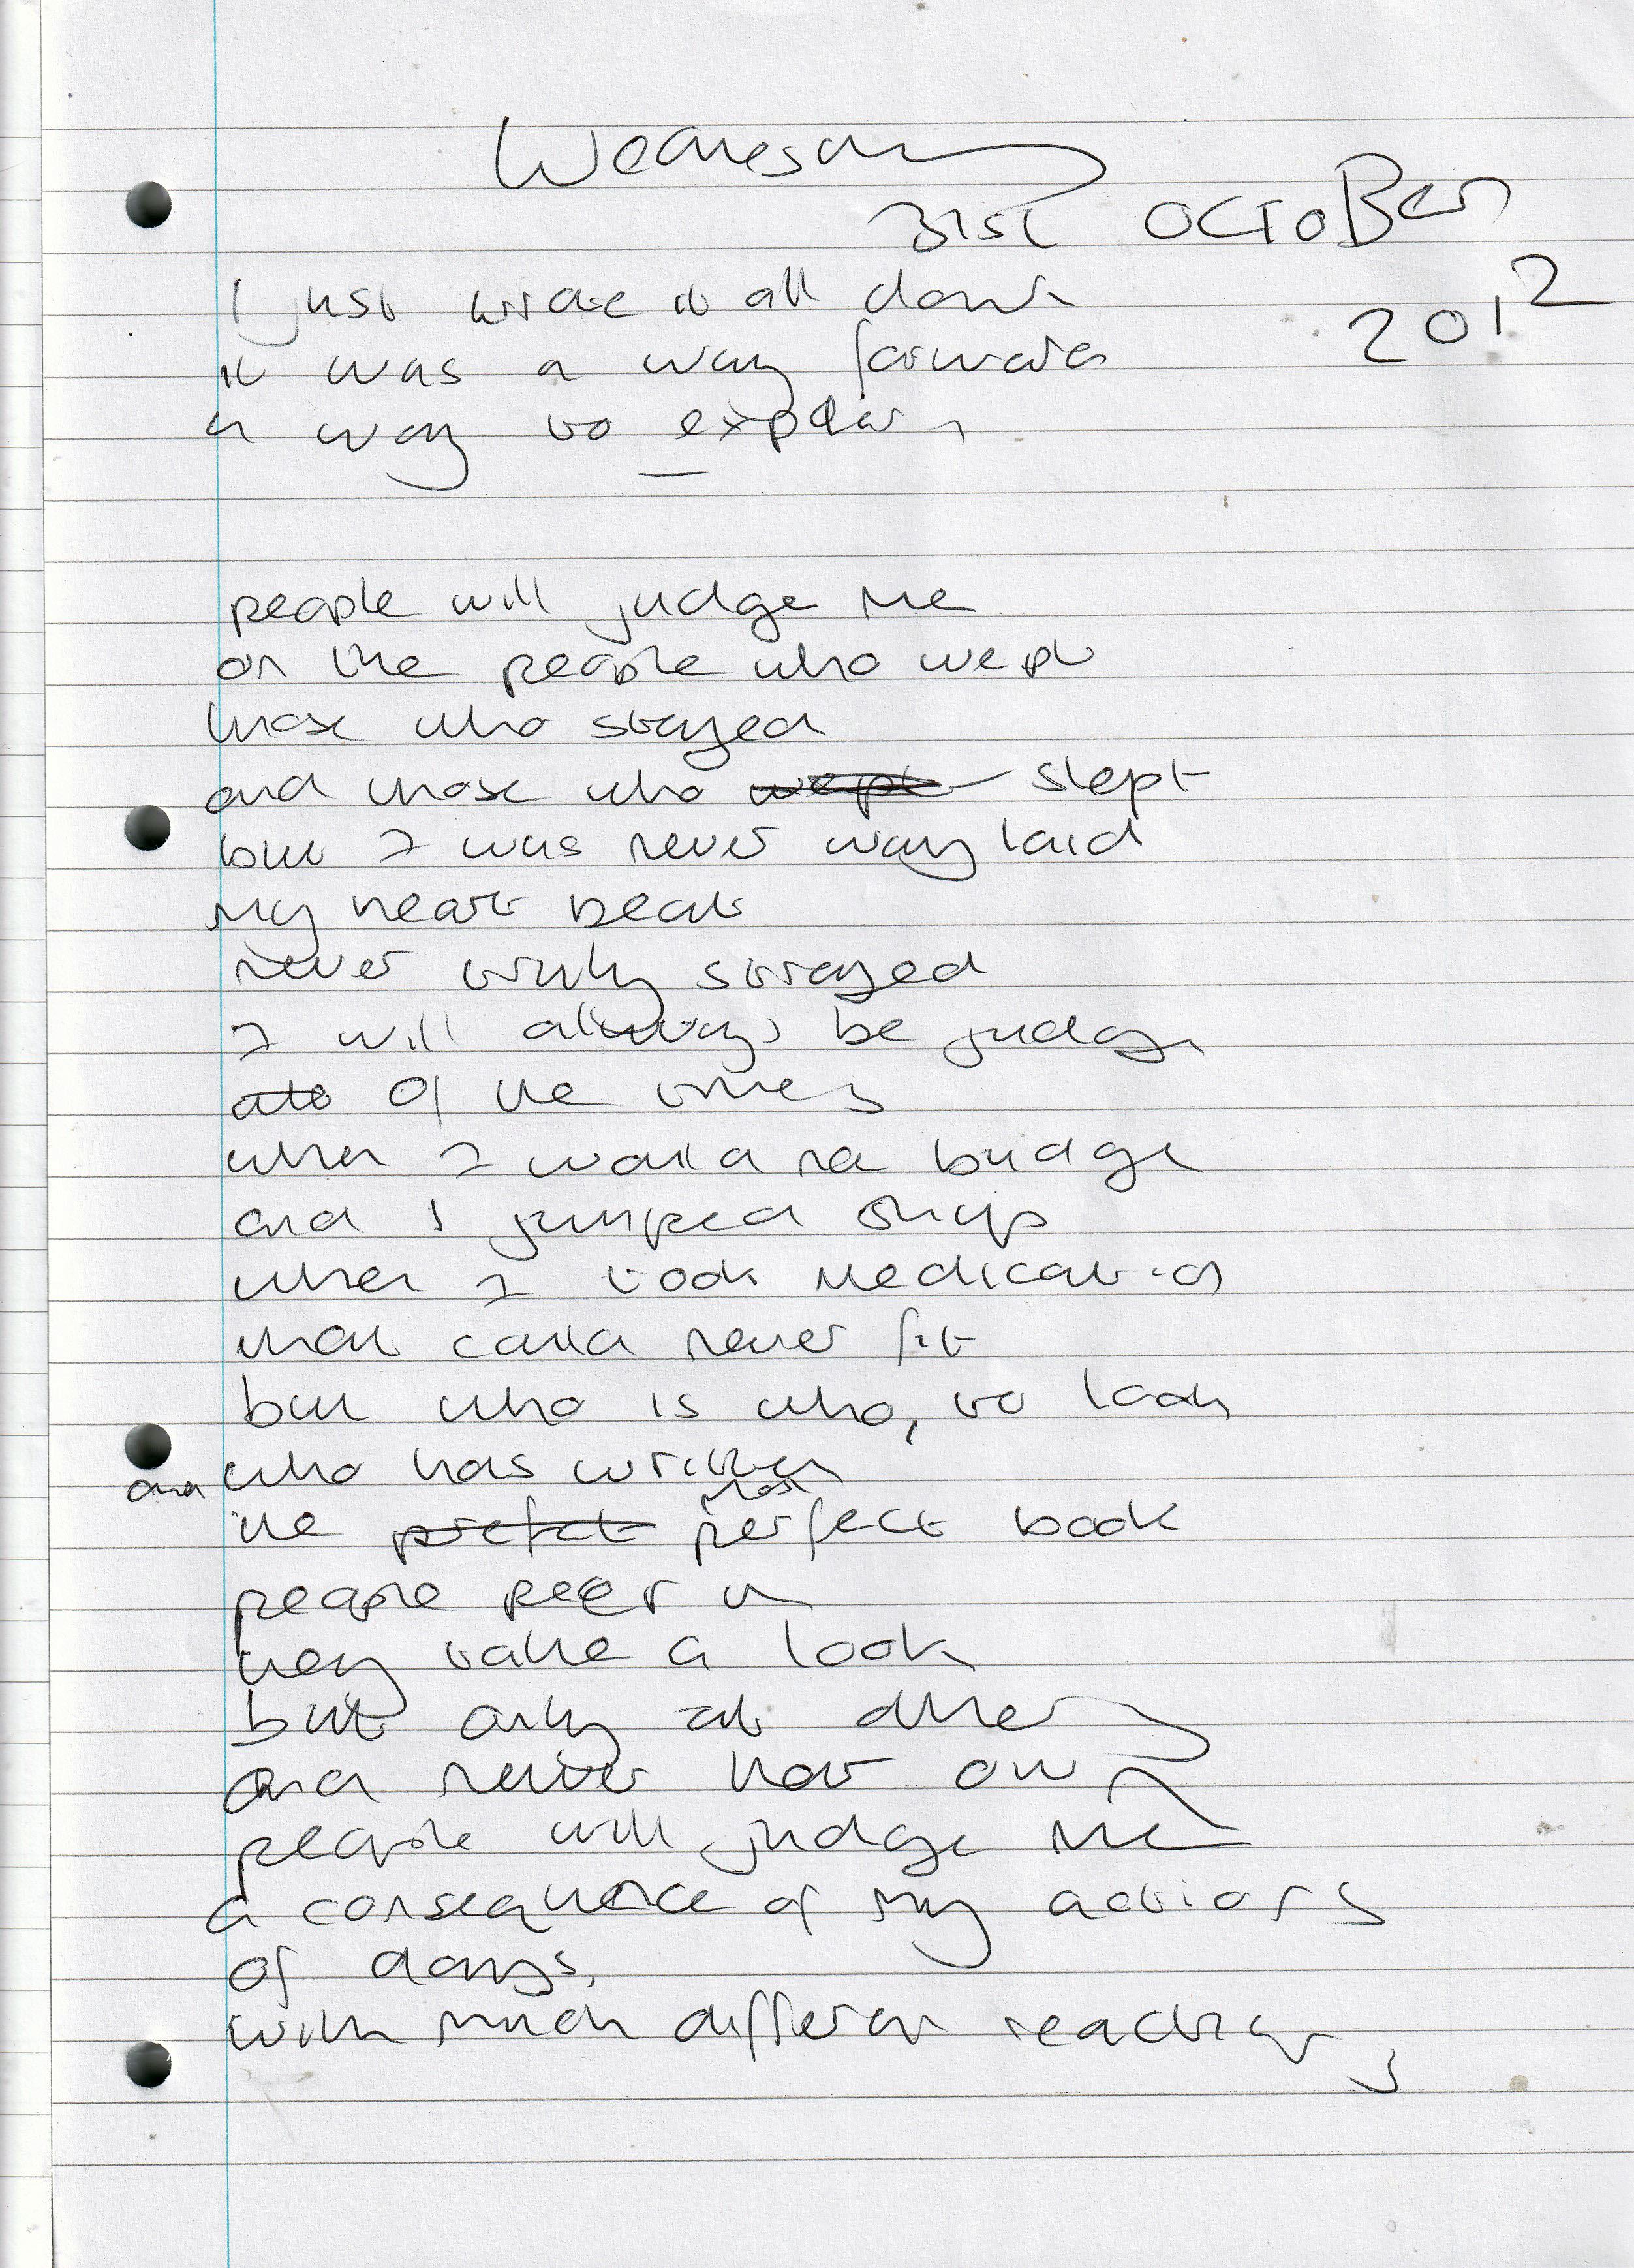 Wednesday
31st OCTOBER
2012
I just wrote it all down
it was a way forward
a way to explain
people will judge me
on the people who wept
those who stayed
and those who wept slept
but I was never way laid
my heart beat
never truly strayed
I will always be judge
of the times
when I would not budge
and I jumped ship
when I took medication
that could never fit
but who is who, to look
and who has written
the prefect most perfect book
people peer in
they take a look
but only at others
and never their own
people will judge me
a consequence of my actions
of days,
with much different reactions